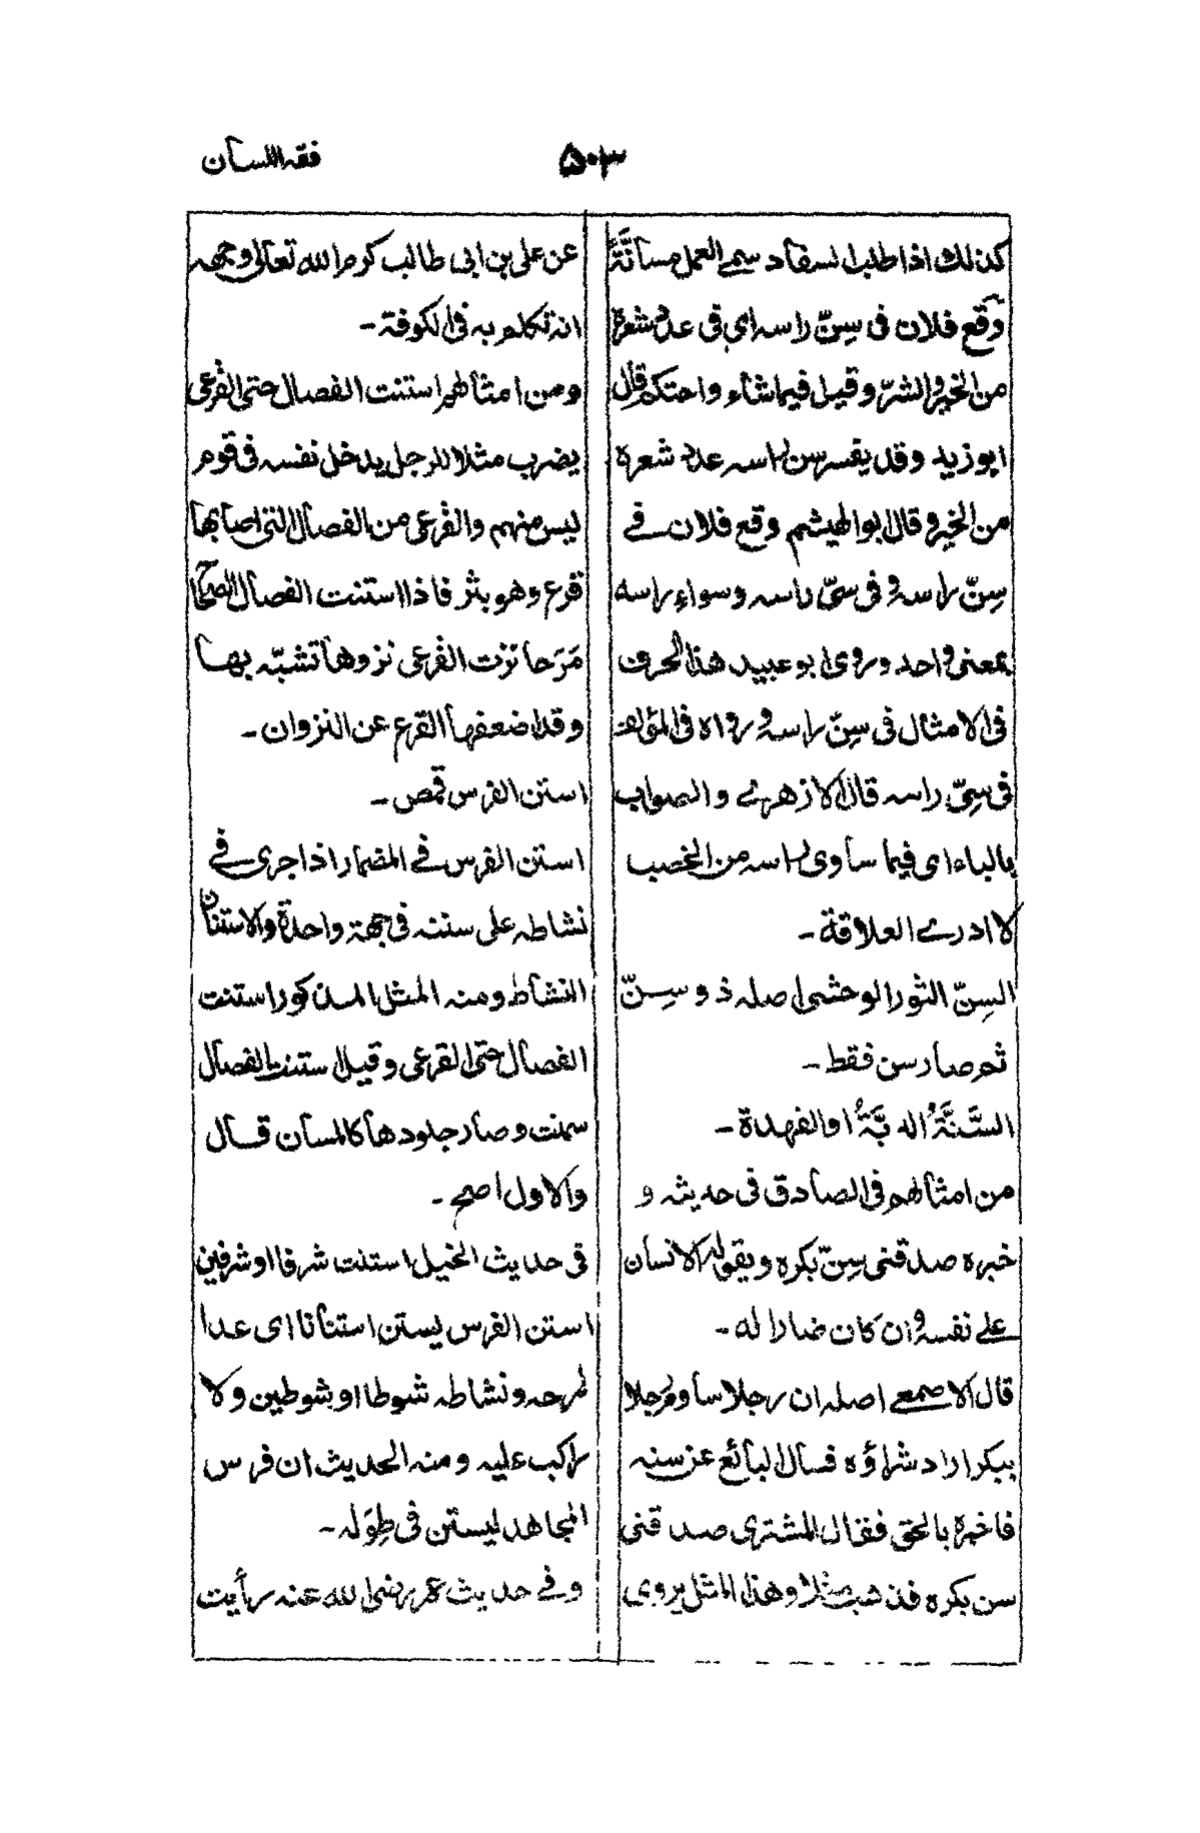 فقه اللسان
۵۰۳
كذلك اذا طلب السفاد سمے العمل مسانَّةً
وقع فلان فى سِنّ راسه اى فى عدد شعرة
من الخير والشرّ وقيل فيما شاء واحتكم قال
ابو زيد وقد يفسر سن راسه عدد شعرة
من الخير وقال ابو الهيثم وقع فلان فے
سِنّ راسه وفى سىّ راسه وسواء راسه
بمعنى واحد وروى ابو عبيد هذا الحرف
فى الامثال فى سِنّ راسه ورواه فى المؤلف
فى سِىّ راسه قال الازهرے والصواب
بالياء اى فيما ساوى راسه من الخصب
لا ادرے العلاقة۔
السِنّ الثور الوحشى اصله ذو سِنّ
ثم صار سن فقط۔
السَّنَّةُ الدبَّةُ او الفهدة۔
من امثالهم فى الصادق فى حديثه و
خبره صدقنى سِنّ بكره ويقوله الانسان
علے نفسه وان كان ضارا له۔
قال الاصمعے اصله ان رجلا ساوم رجلا
ببكر اراد شراؤه فسال البائع عن سنه
فاخبره بالحق فقال المشترى صدقنى
سن بكره فذهب مثلا وهذا المثل يروى
عن على بن ابى طالب كرم الله تعالى وجهه
انه تكلم به فى الكوفة۔
ومن امثالهم استنت الفصال حتى القرعى
يضرب مثلا للرجل يدخل نفسه فى قوم
ليس منهم والقرعى من الفصال التى اصابها
قرع وهو بثر فاذا استنت الفصال الصحاح
مَرَحا نزت القرعى نزوها تشبّه بها
وقد اضعفها القرع عن النزوان۔
استن الفرس قمص۔
استن الفرس فے المضمار اذا جرى فے
نشاطه على سننه فى جهة واحدة والاستنان
النشاط ومنه المثل المذكور استنت
الفصال حتى القرعى وقيل استنت الفصال
سمنت وصار جلودها كالمسان قال
والاول اصح۔
فى حديث الخيل استنت شرفا او شرفين
استن الفرس يستن استنانا اى عدا
لمرحه ونشاطه شوطا او شوطين ولا
راكب عليه ومنه الحديث ان فرس
المجاهد ليستن فى طِوَله۔
وفے حديث عمر رضى الله عنه رأيت